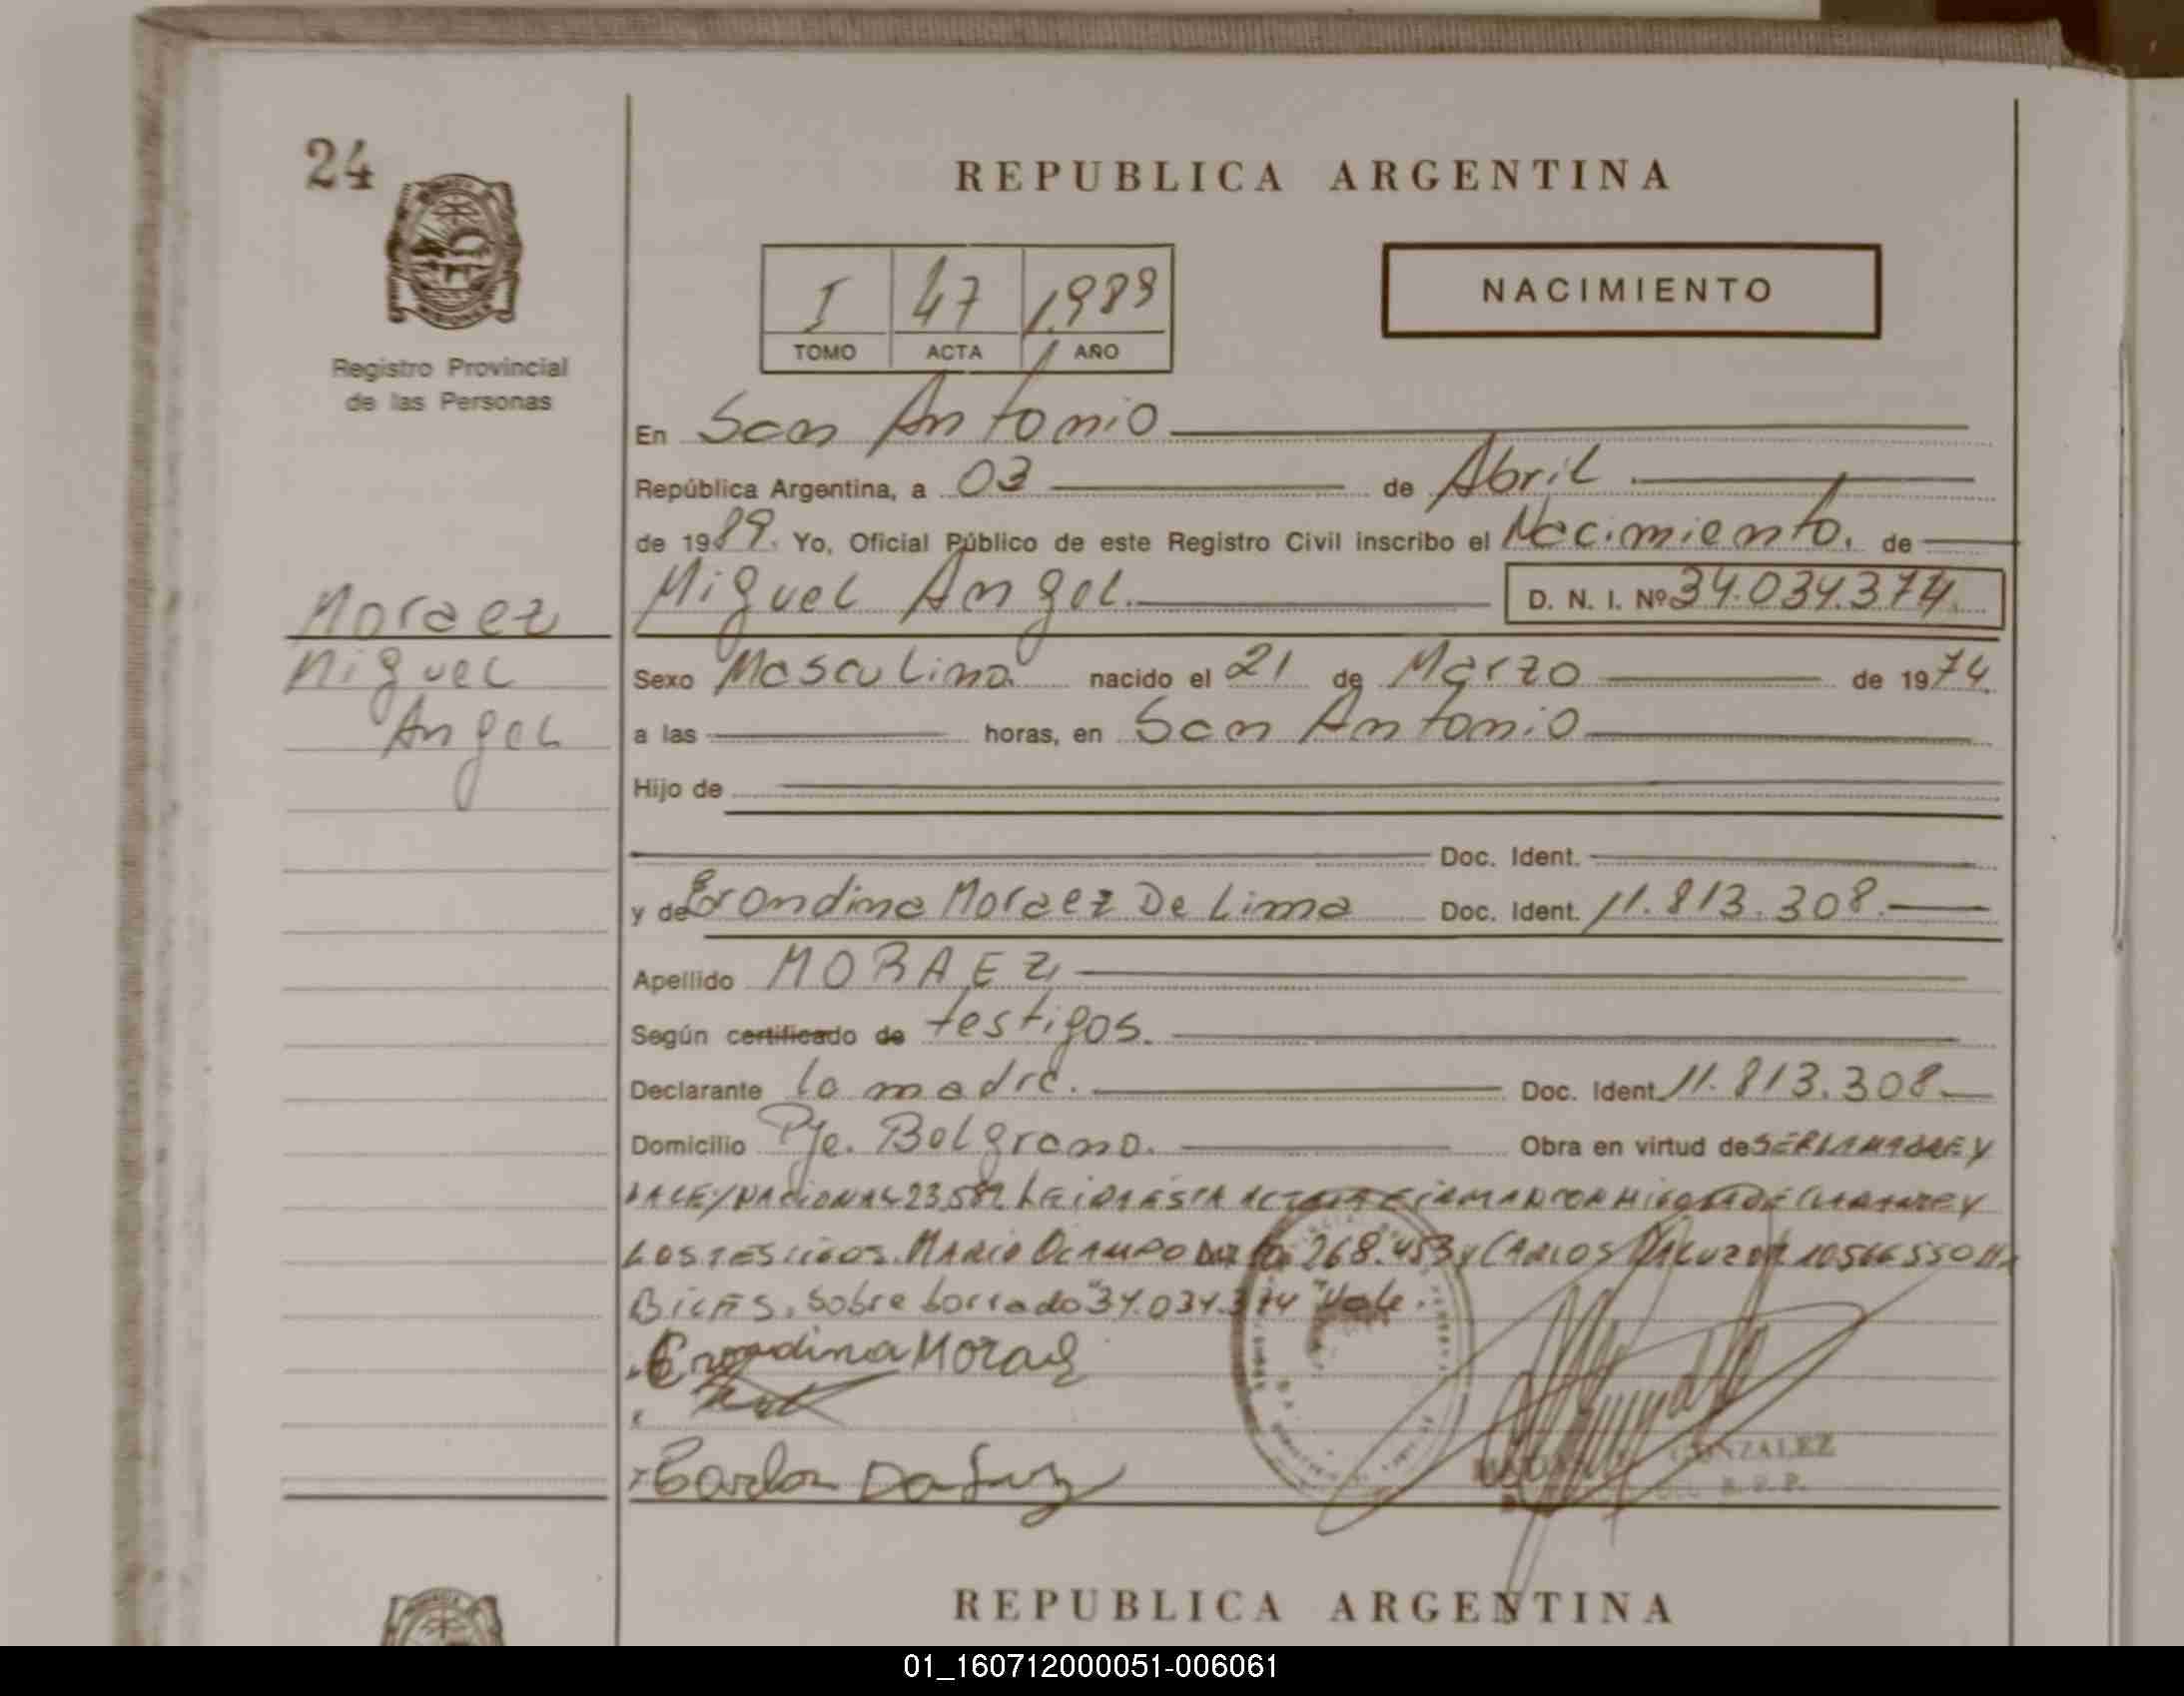 24
REPUBLICA ARGENTINA
I 47 1989
TOMO ACTA AÑO
NACIMIENTO
Registro Provincial
de las Personas
En San Antonio
República Argentina, a 03 de Abril
de 1989. Yo, Oficial Público de este Registro Civil inscribo el Nacimiento. de
Moraez
Miguel
Angel
Miguel Angel. D. N. I. Nº 34.034.374
Sexo Masculino nacido el 21 de Marzo de 1974.
a las horas, en San Antonio
Hijo de
Doc. Ident.
y de Erondina Moraez De Lima Doc. Ident. 11.813.308.
Apellido MORAEZ
Según certificado de testigos.
Declarante la madre. Doc. Ident. 11.813.308
Domicilio Pje. Belgrano. Obra en virtud de SER LA MADRE Y
LA LEY NACIONAL 23.582 LEIDA ESTA ACTA LA FIRMAN CONMIGO LA DECLARANTE Y
LOS TESTIGOS. MARIO OCAMPO 268.453 y CARLOS DALUZ 10566550
BILES. Sobre borrado "34.034.374" Vale.
Erondina Moraez
Carlos Da Luz
GONZALEZ
R. P. P.
REPUBLICA ARGENTINA
01_160712000051-006061